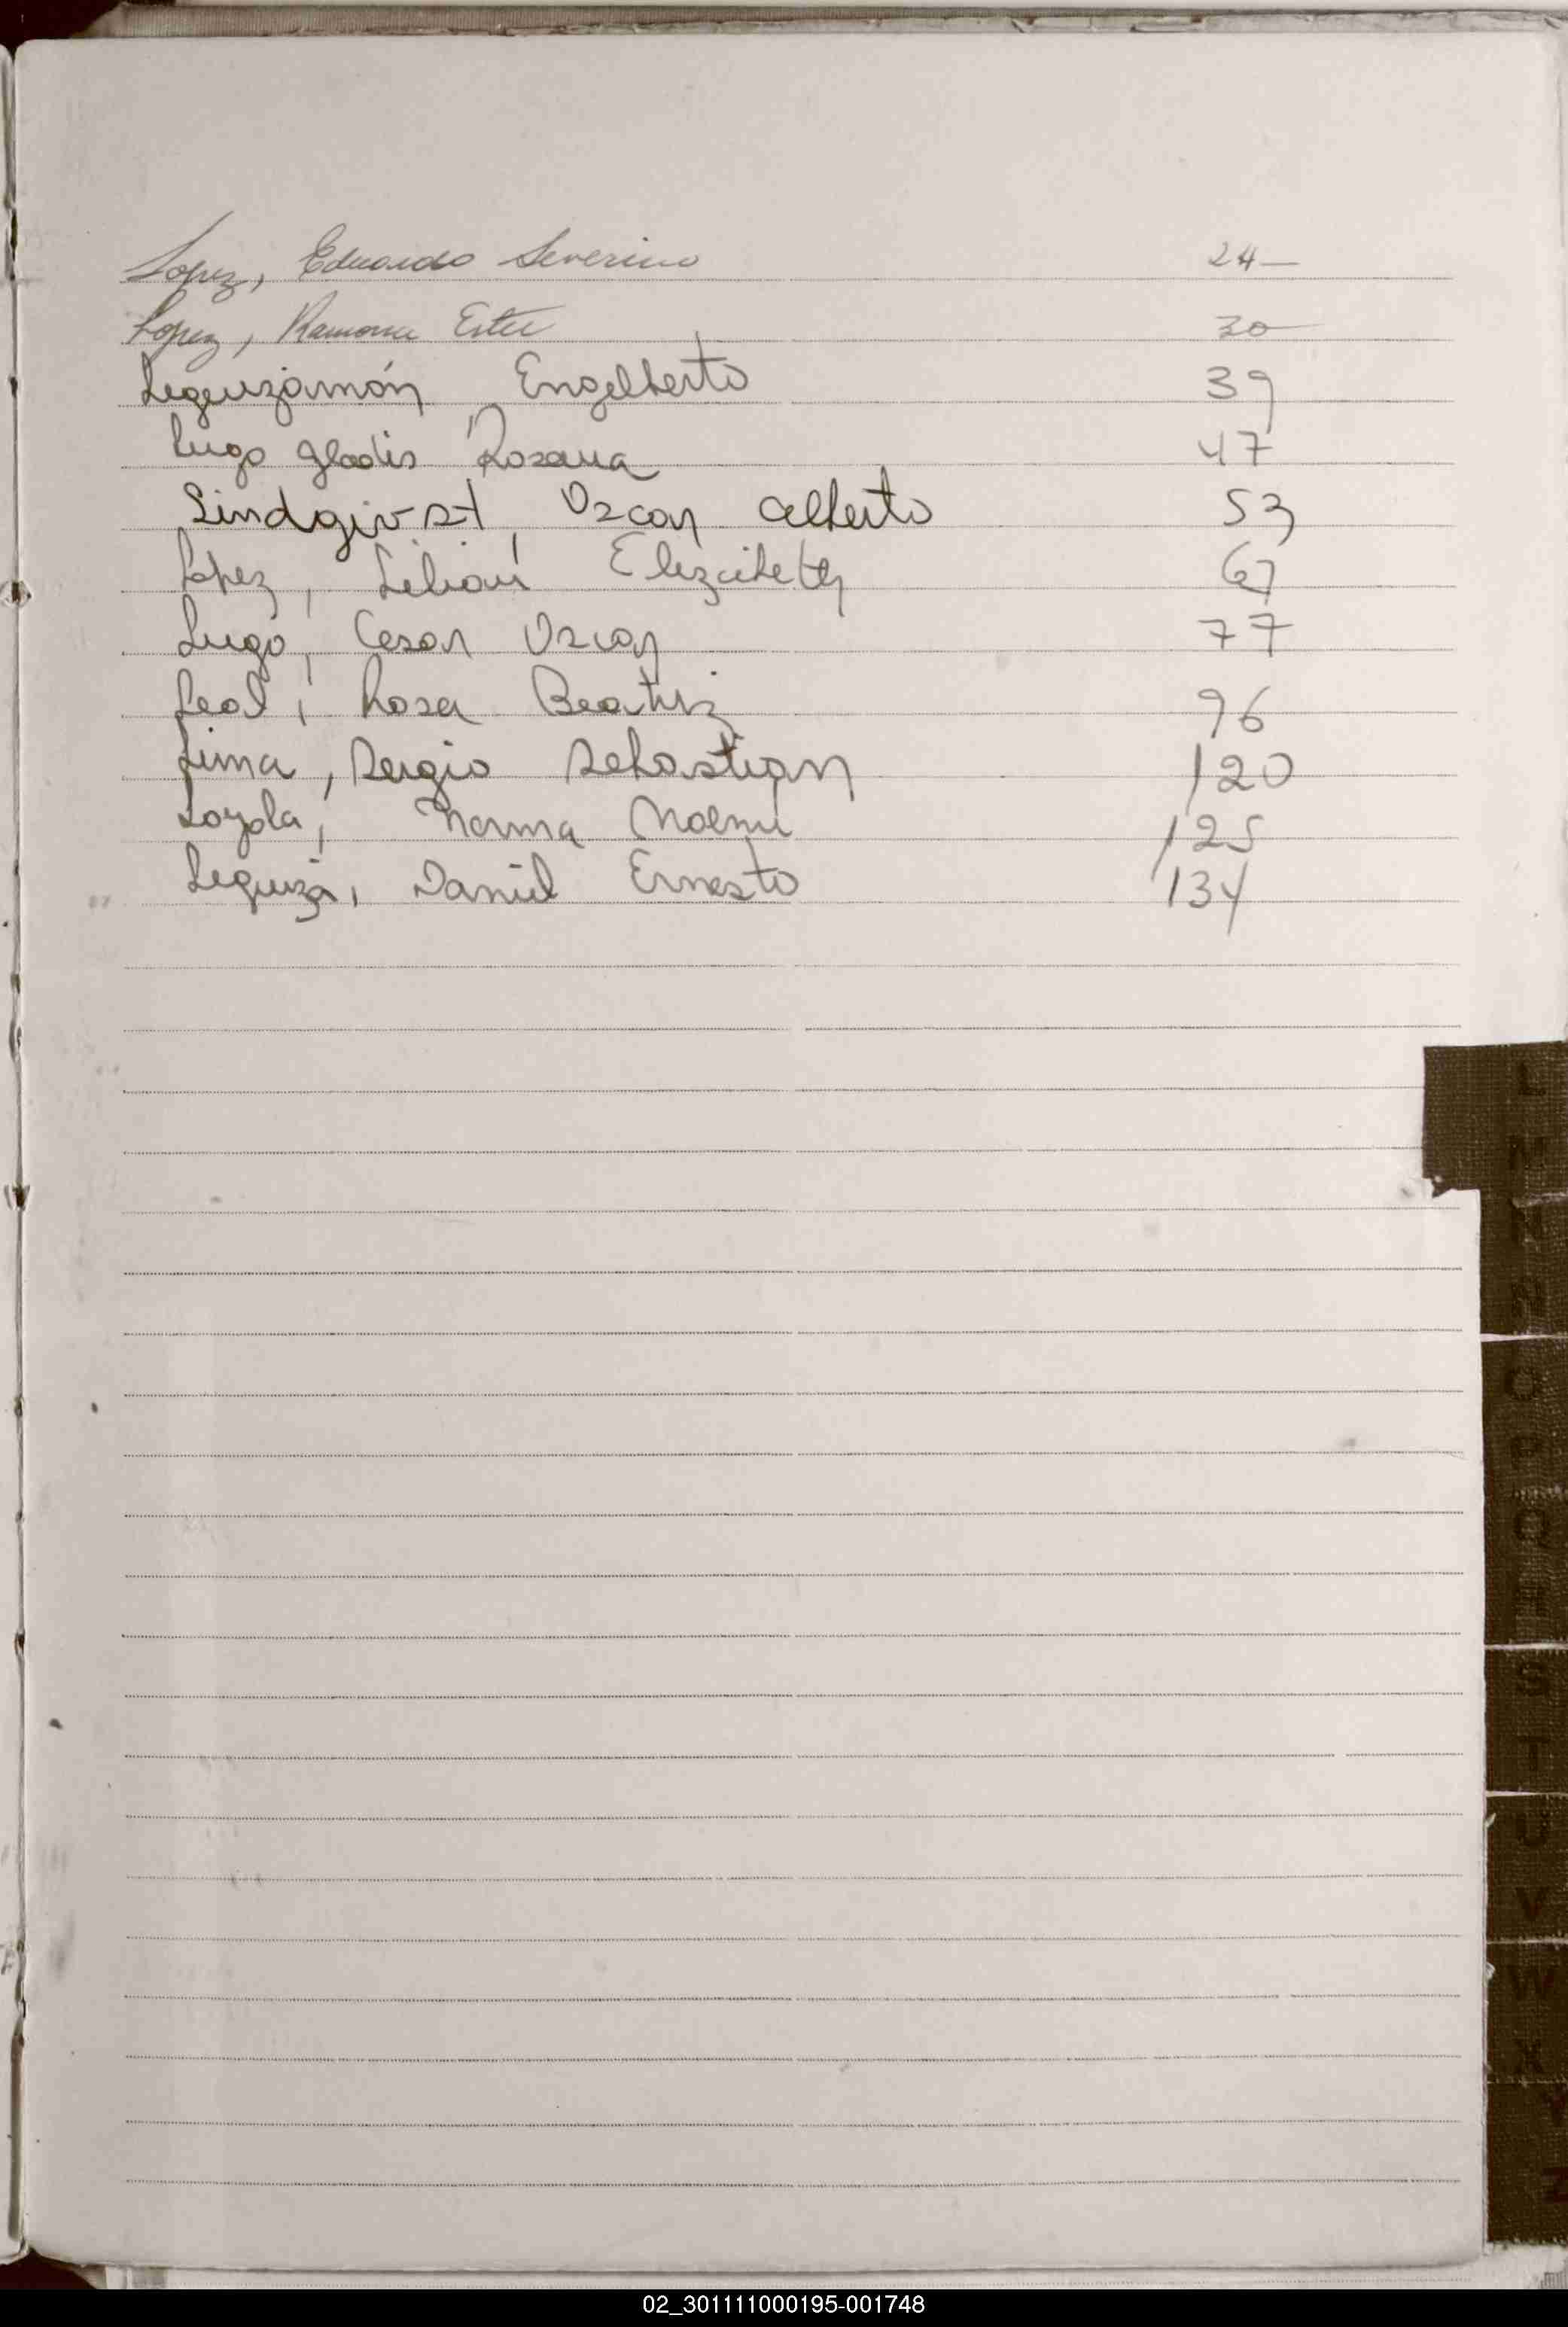 Lopez, Eduardo Severino 24-
Lopez, Ramona Ester 30
Leguizamón Engelberto 39
Lugo Gladis Rosana 47
Lindgivst, Oscar Alberto 53
Lopez, Lilian Elizabeth 67
Lugo, Cesar Oscar 77
Leal, Rosa Beatriz 96
Lima, Sergio Sebastian 120
Loyola, Norma Noemi 125
Leguiza, Daniel Ernesto 134
L
M
N
Ñ
O
P
Q
R
S
T
U
V
W
X
Y
Z
02_301111000195-001748